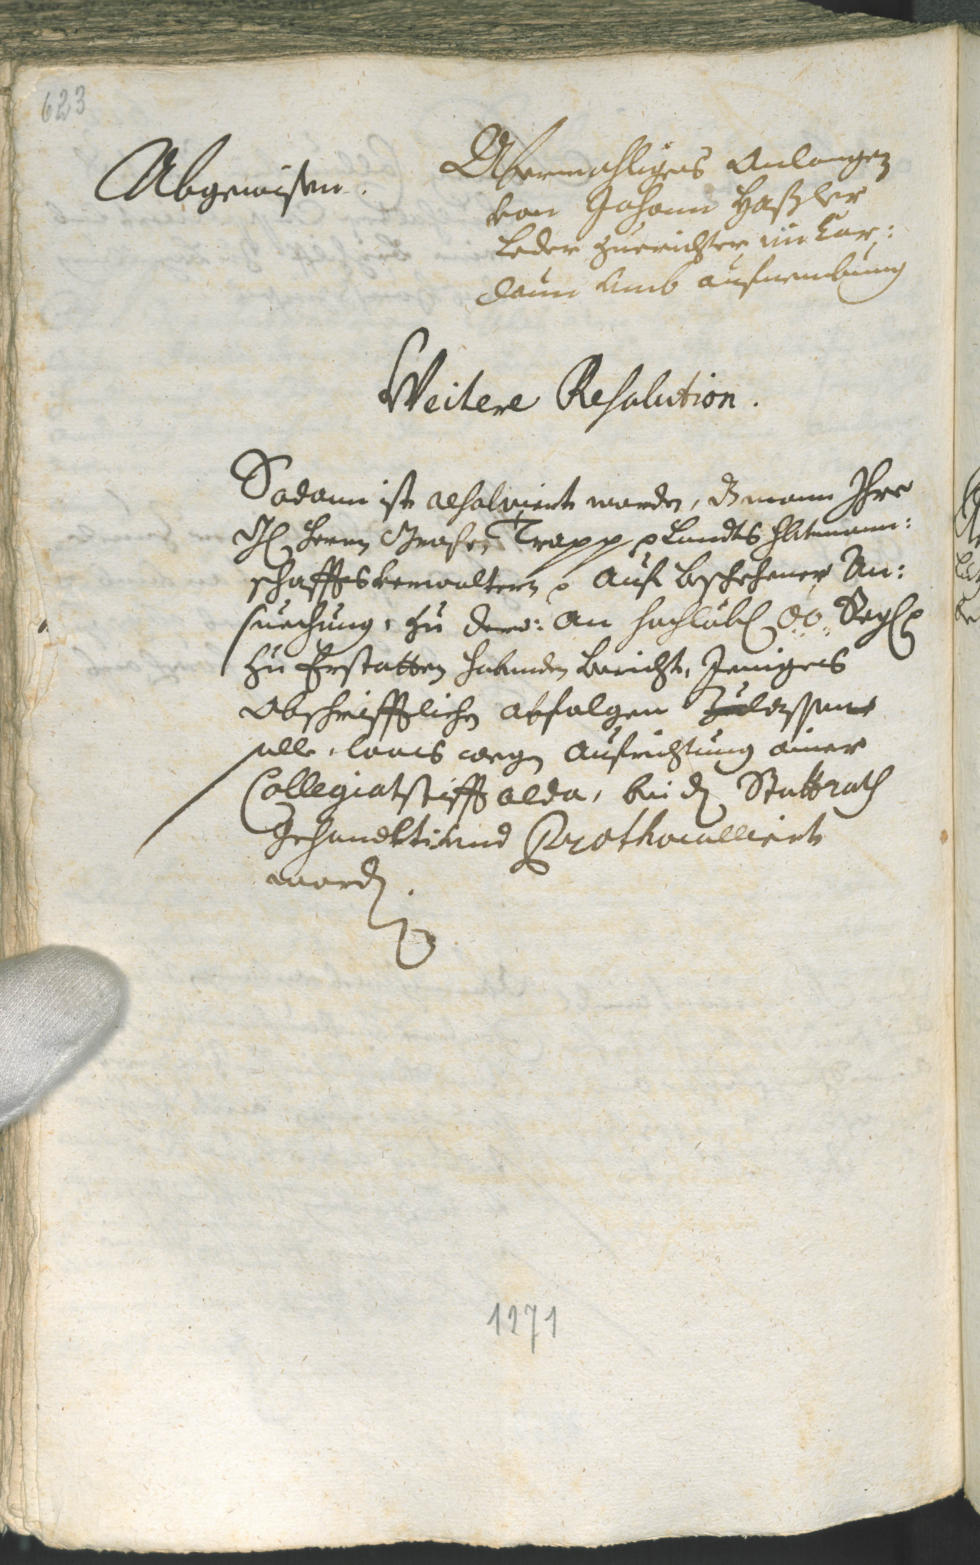 623
Abgewisen.
Abermahliges Anlangen
von Johann Haßler
Leder Zuerichter im Lor:
daun umb aufnembung
Weitere Resolution.
Sodann ist resolviert worden, dz mann Ihro
Herrn Grafen Trapp p Landts Hbtmann:
schaffts verwaltern p auf beschehener An:
suechung, zu dero: an hochlöbl: OÖ: Regl:
zu Erstatten habenden bericht, Jeniges
Abschrifftlichen abfolgen lassen
solle, waß wegen Aufrichtung ainer
Collegiatstifft alda, bei dem Stattrath
gehandlt und Prothocolliert
worden.
1271